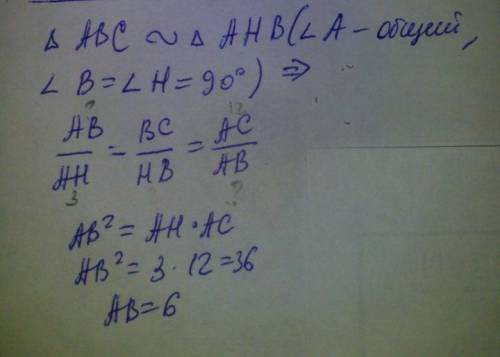 Δ ABC ~ Δ AHB (∠A - общий,
∠ B = ∠ H = 90°) ⇒
? 12
AB/AH - BC/HB = AC/AB
3 ?
AB² = AH · AC
AB² = 3 · 12 = 36
AB = 6